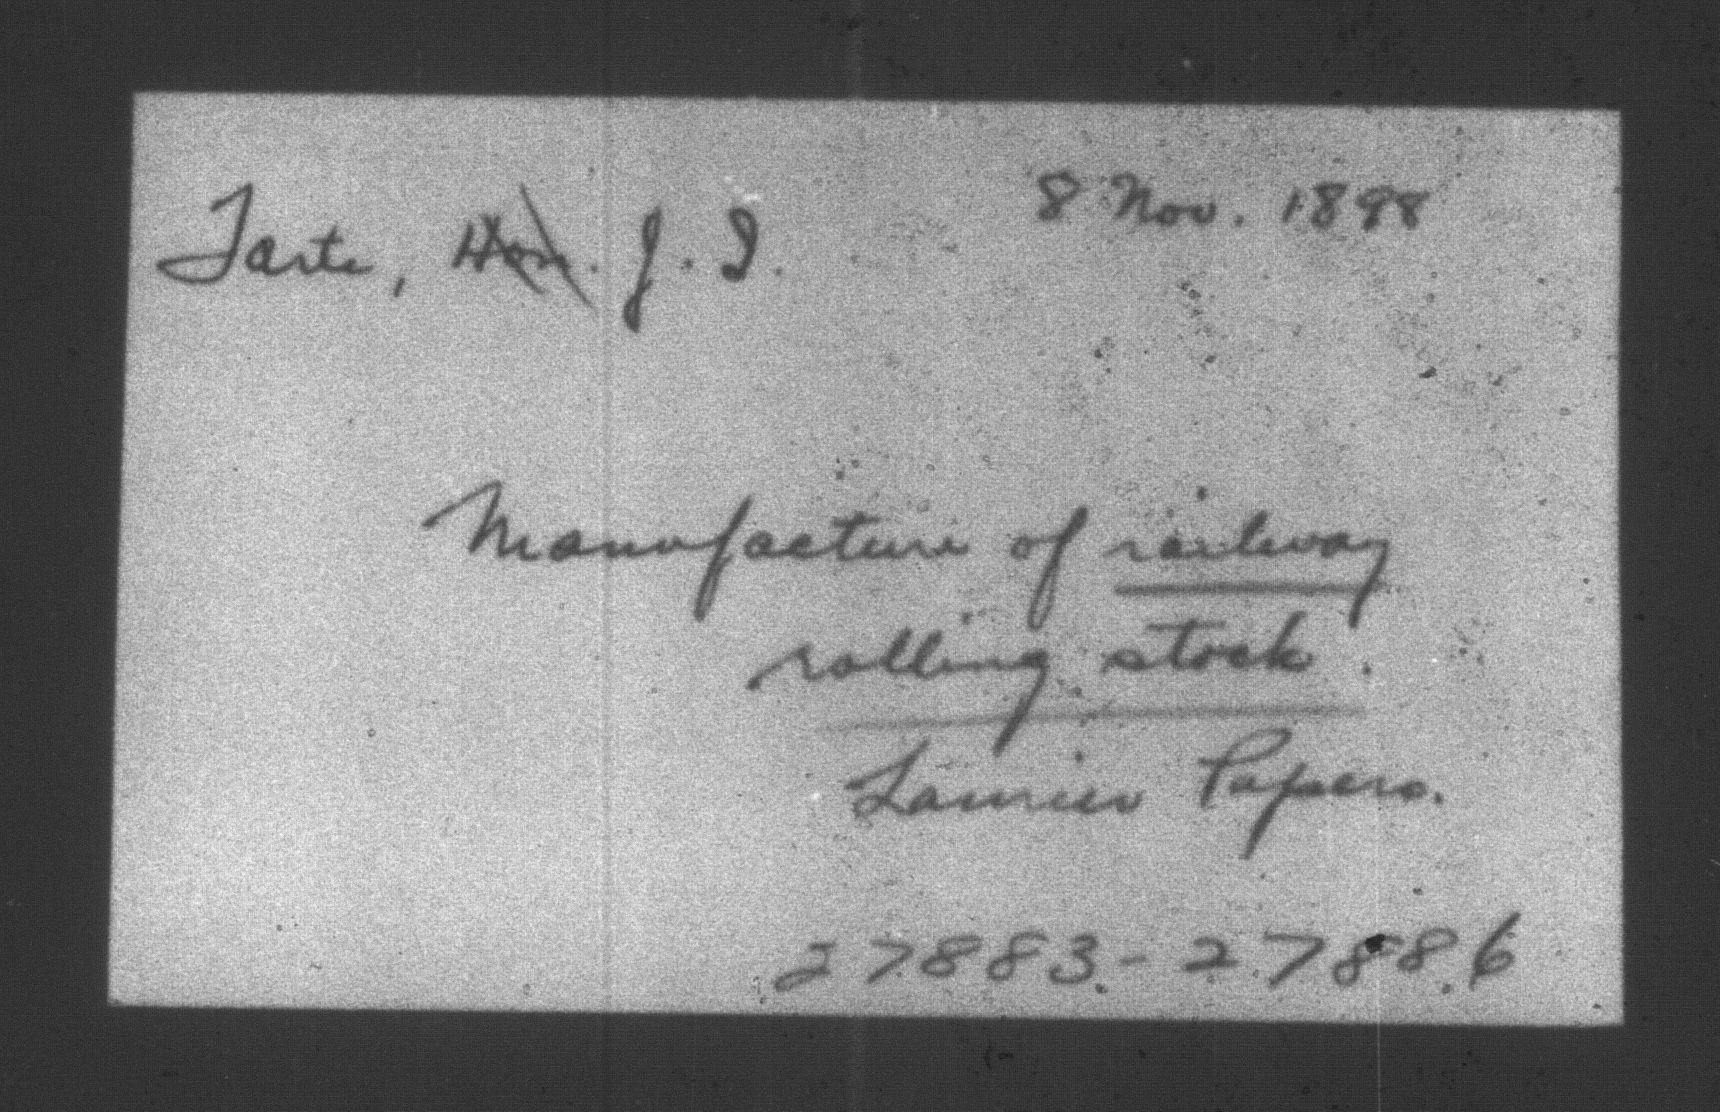 Tarte, Hon. J. I. 8 Nov. 1898
Manufacture of railway
rolling stock.
Laurier Papers.
27883-27886